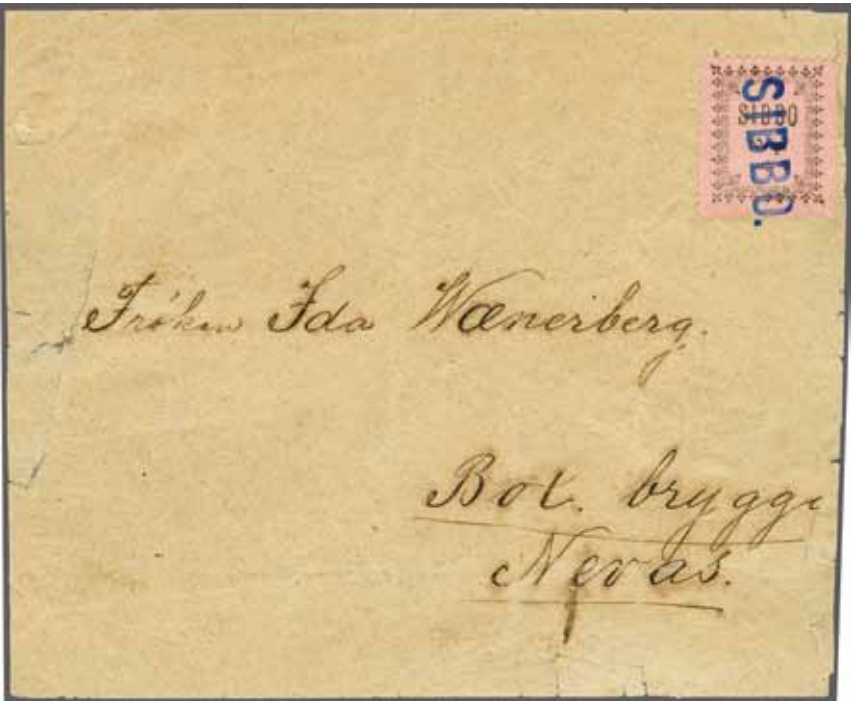 SIBBO
SIBBO.
Fröken Ida Wænerberg.
Box. brygge
Nevas.